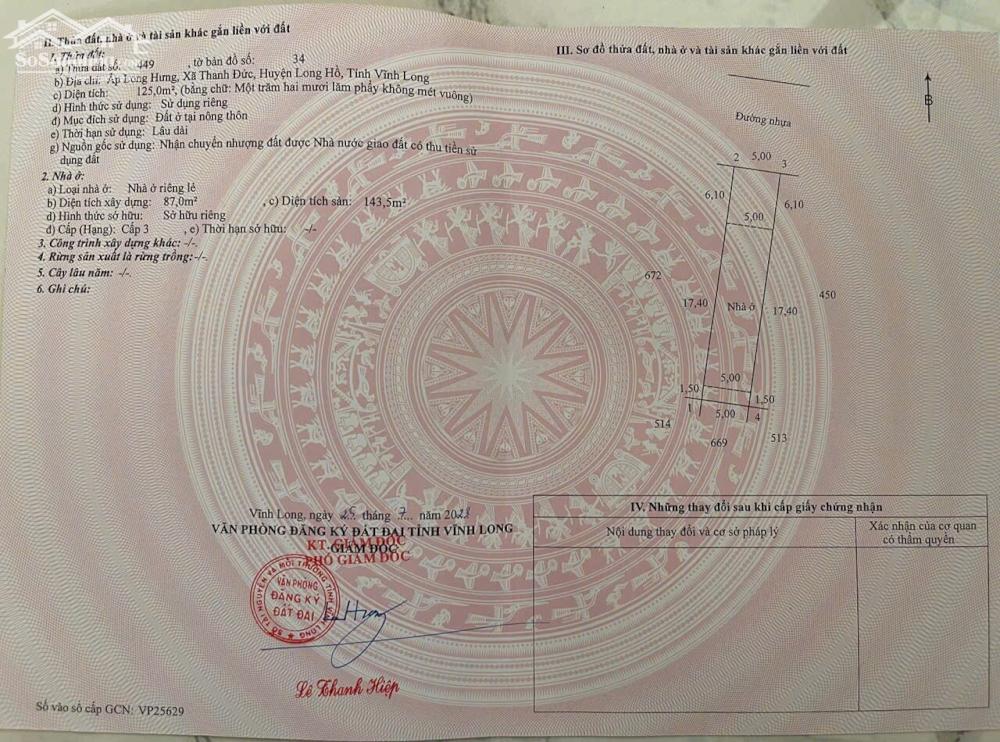 II. Thửa đất, nhà ở và tài sản khác gắn liền với đất
1. Thửa đất:
a) Thửa đất số: 449 , tờ bản đồ số: 34
b) Địa chỉ: Ấp Long Hưng, Xã Thanh Đức, Huyện Long Hồ, Tỉnh Vĩnh Long
c) Diện tích: 125,0m², (bằng chữ: Một trăm hai mươi lăm phẩy không mét vuông)
d) Hình thức sử dụng: Sử dụng riêng
đ) Mục đích sử dụng: Đất ở tại nông thôn
e) Thời hạn sử dụng: Lâu dài
g) Nguồn gốc sử dụng: Nhận chuyển nhượng đất được Nhà nước giao đất có thu tiền sử
dụng đất
2. Nhà ở:
a) Loại nhà ở: Nhà ở riêng lẻ
b) Diện tích xây dựng: 87,0m² , c) Diện tích sàn: 143,5m²
d) Hình thức sở hữu: Sở hữu riêng
đ) Cấp (Hạng): Cấp 3 , e) Thời hạn sở hữu: -/-
3. Công trình xây dựng khác: -/-.
4. Rừng sản xuất là rừng trồng: -/-.
5. Cây lâu năm: -/-.
6. Ghi chú:
Vĩnh Long, ngày 25 tháng 7 năm 2023
VĂN PHÒNG ĐĂNG KÝ ĐẤT ĐAI TỈNH VĨNH LONG
KT. GIÁM ĐỐC
GIÁM ĐỐC
PHÓ GIÁM ĐỐC
SỞ TÀI NGUYÊN VÀ MÔI TRƯỜNG TỈNH VĨNH LONG
VĂN PHÒNG
ĐĂNG KÝ
ĐẤT ĐAI
Lê Thanh Hiệp
Số vào sổ cấp GCN: VP25629
III. Sơ đồ thửa đất, nhà ở và tài sản khác gắn liền với đất
B
Đường nhựa
2 5,00 3
6,10 6,10
5,00
672
450
17,40 Nhà ở 17,40
5,00
1,50 1,50
1 5,00 4
514
669 513
IV. Những thay đổi sau khi cấp giấy chứng nhận
Nội dung thay đổi và cơ sở pháp lý
Xác nhận của cơ quan
có thẩm quyền